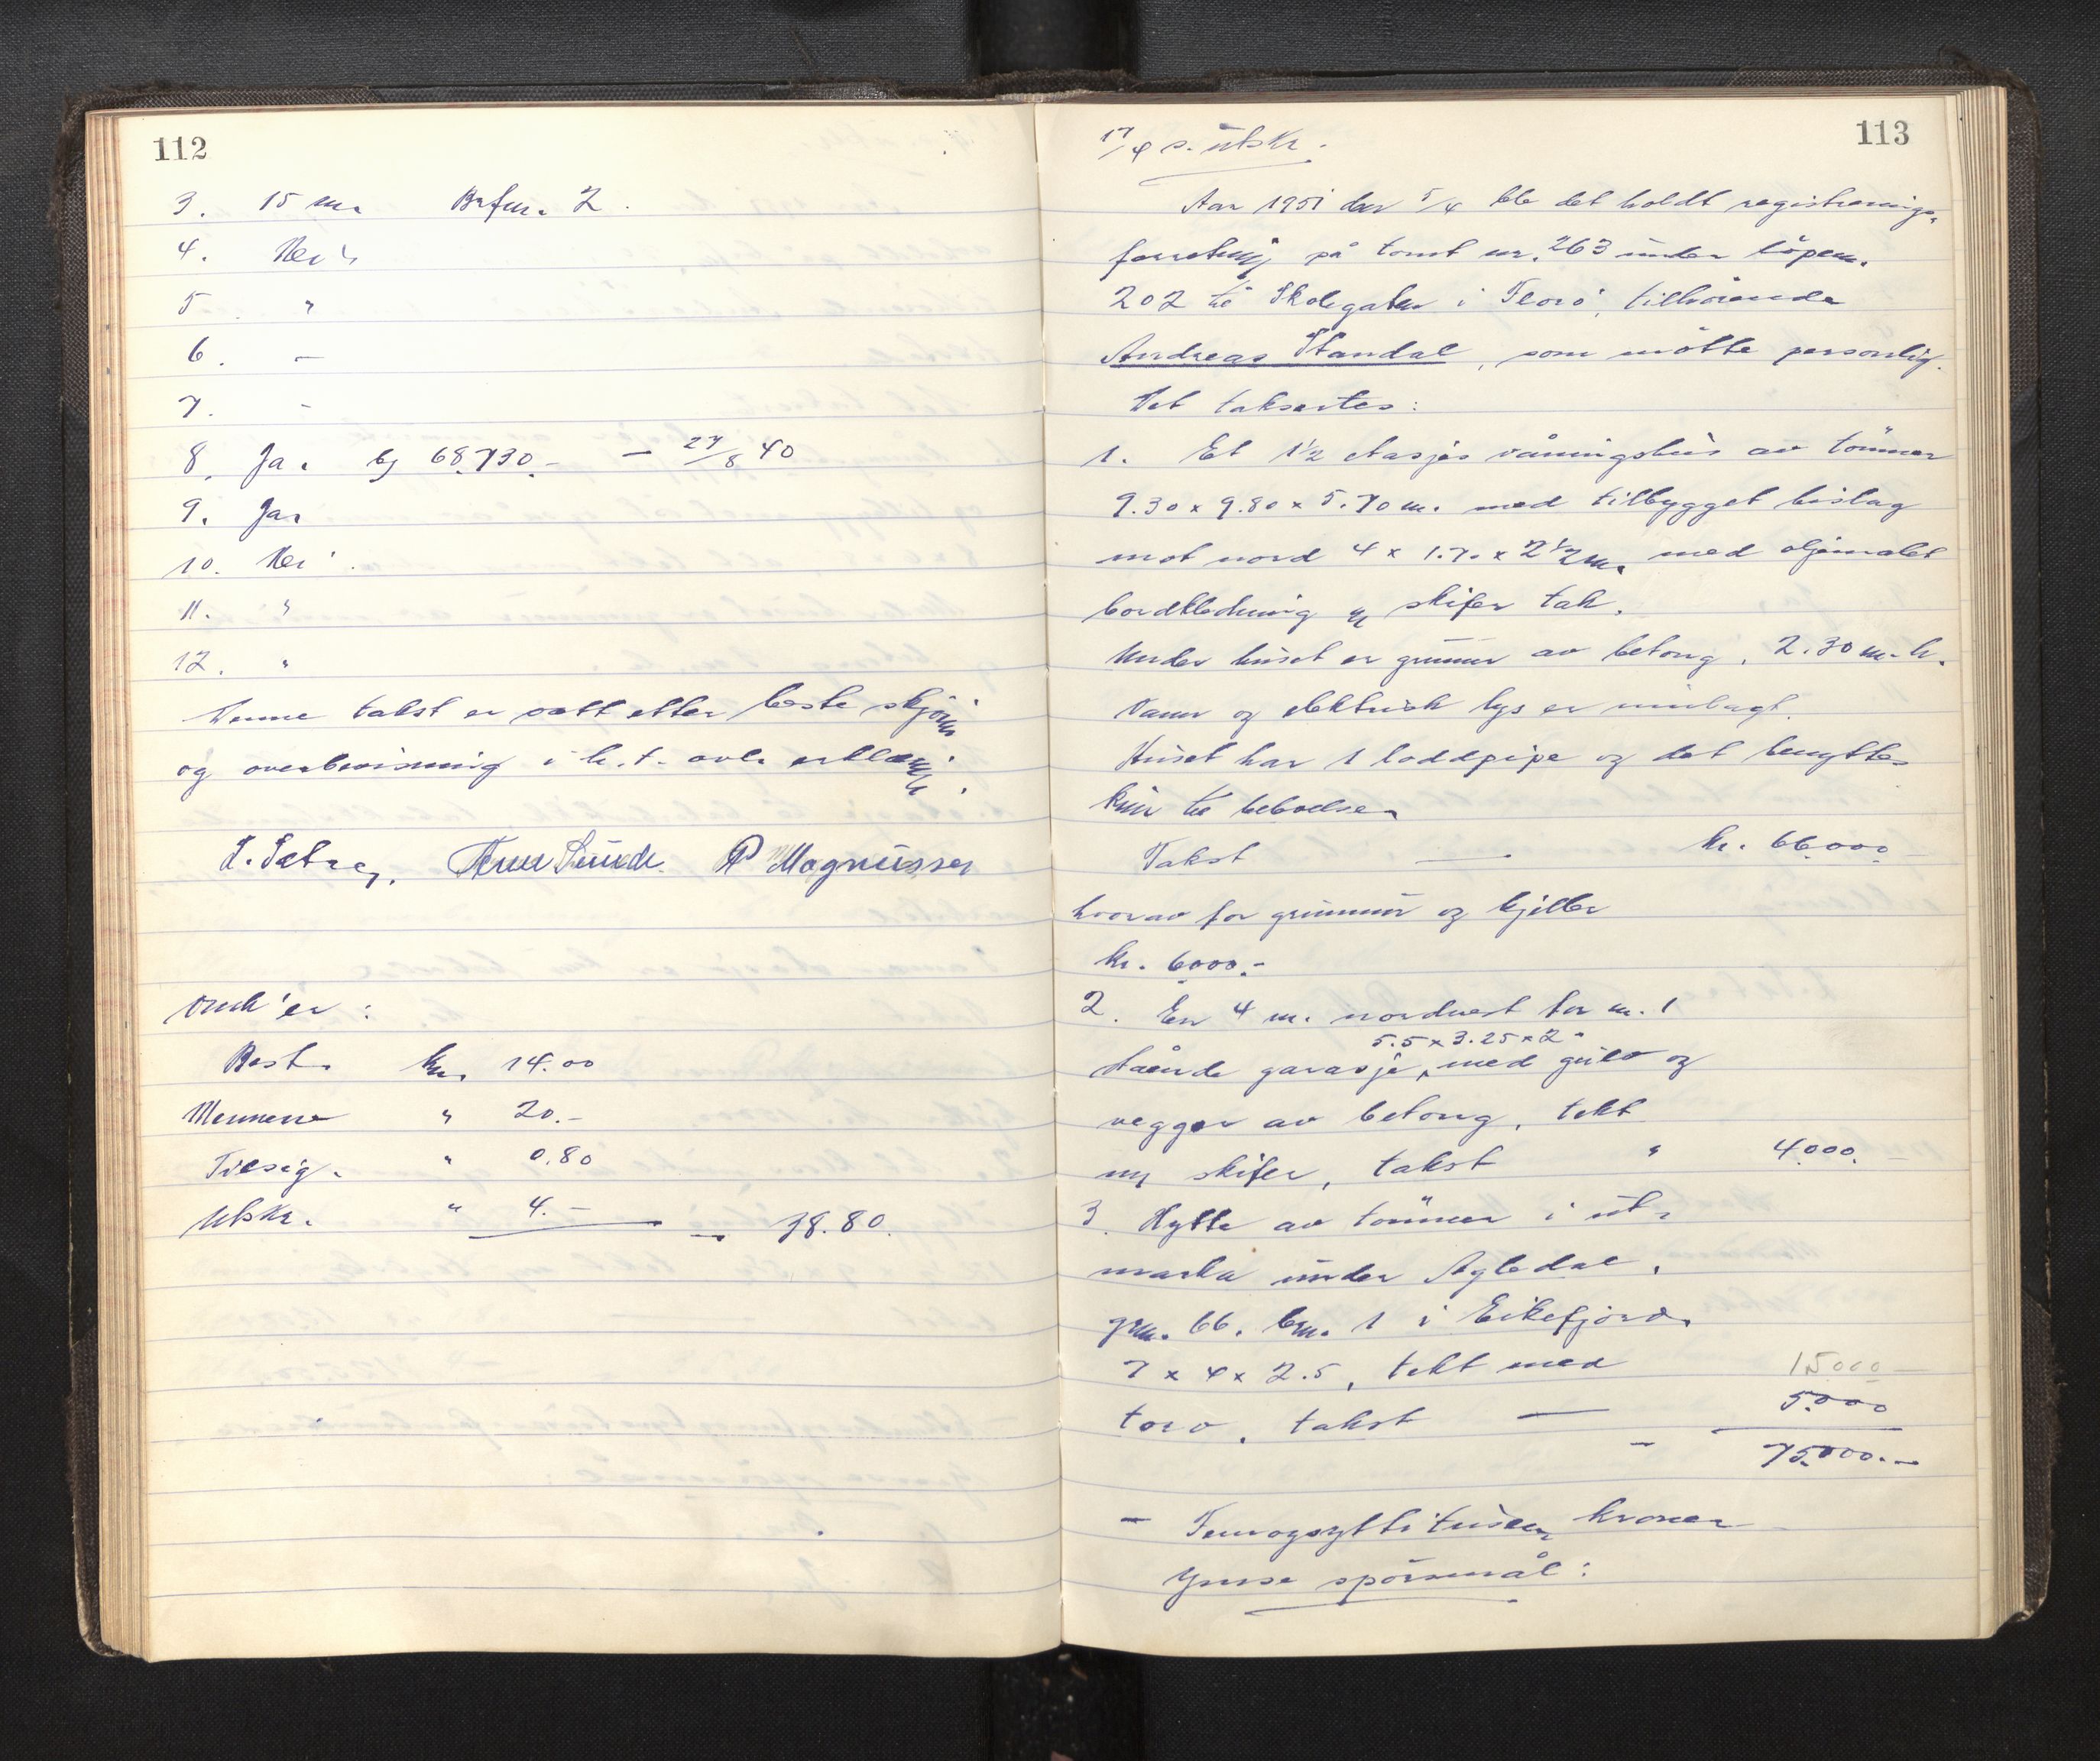 112
3. 15 m. Brfm. 2.
4. Nei
5 "
6. —
7. -
8. Ja. bg 68.730.- — 27/8 40
9. Ja.
10. Nei.
11. "
12. "
Denne takst er satt etter beste skjønn
og overbevisning i h. t. avl. erklæring.
L. Sætre, Arne Sunde P Magnussen
Omk'er:
Best. kr. 14.00
Mennene " 20.-
Tilsig. " 0.80
Utskr. " 4.- — 38.80.
113
17/4 s. utskr.
Aar 1951 den 5/4 ble det holdt registrerings-
forretning på tomt nr. 263 under löpenr.
202 til Skolegaten i Florö, tilhörende
Andreas Standal, som mötte personlig.
Det taksertes:
1. Et 1½ etasjes våningshus av tömmer
9.30 x 9.80 x 5.70 m. med tilbygget bislag
mot nord 4 x 1.70 x 2½ m. med oljemalet
bordkledning og skifer tak.
Under huset er grunnmur av betong, 2.30 m. h.
Vann og elektrisk lys er innlagt.
Huset har 1 loddpipe og det benyttes
kun til beboelse.
Takst — kr. 66.000 -
hvorav for grunnmur og kjeller
kr. 6000.-
2. En 4 m. nordvest for nr. 1
5.5 x 3.25 x 2 -
stående garasje, med gulv og
vegger av betong, tekt
m/ skifer, takst " 4.000. -
3. Hytte av tömmer i ut-
marka under Agledal,
grn. 66. brn. 1 i Eikefjord.
7 x 4 x 2.5, tekt med 15000 -
torv, takst — 5.000
- 75.000.-
- Femogsyttitusen kroner
Ymse spörsmål: